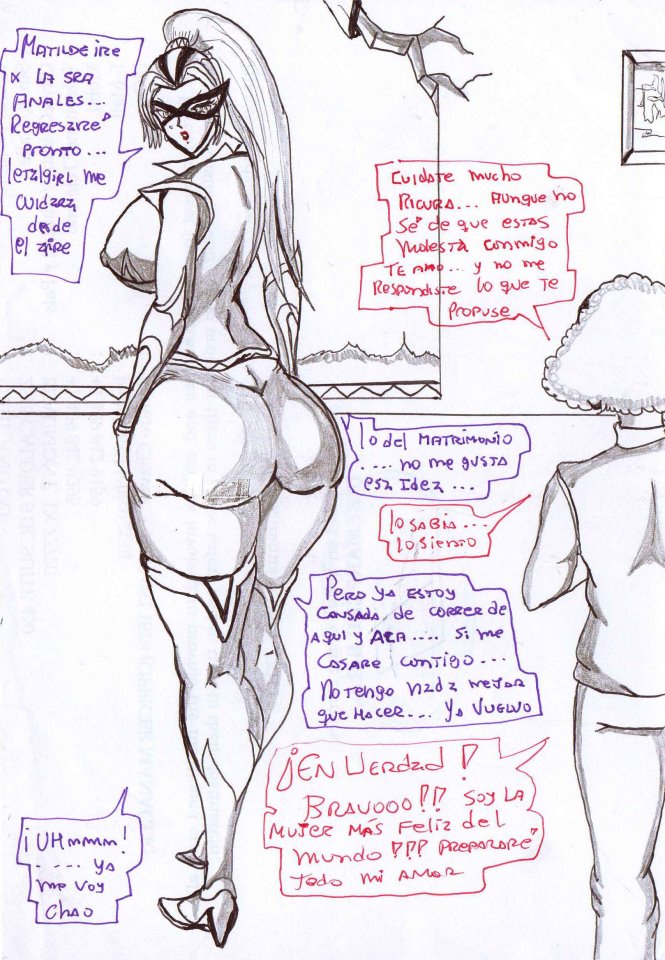 MATILDE IRE
X LA SRA
ANALES...
REGRESARE
PRONTO...
letalgirl me
cuidara
desde
el aire
CUIDATE MUCHO
RICURA... AUNQUE NO
SÉ DE QUE ESTAS
MOLESTA CONMIGO
TE AMO... Y NO ME
RESPONDISTE LO QUE TE
PROPUSE
lo del MATRIMONIO
.... no me gusta
esa Idea...
lo SABIA...
lo SIENTO
PERO YA ESTOY
CANSADA DE CORRER DE
AQUI Y ACA.... SI ME
CASARE CONTIGO...
NO TENGO NADA MEJOR
QUE HACER.... YA VUELVO
¡EN VERDAD!
BRAVOOO!!! SOY LA
MUJER MÁS FELIZ DEL
MUNDO!!! PREPARARÉ
TODO MI AMOR
¡UHmmm!
.... YA
me voy
CHAO